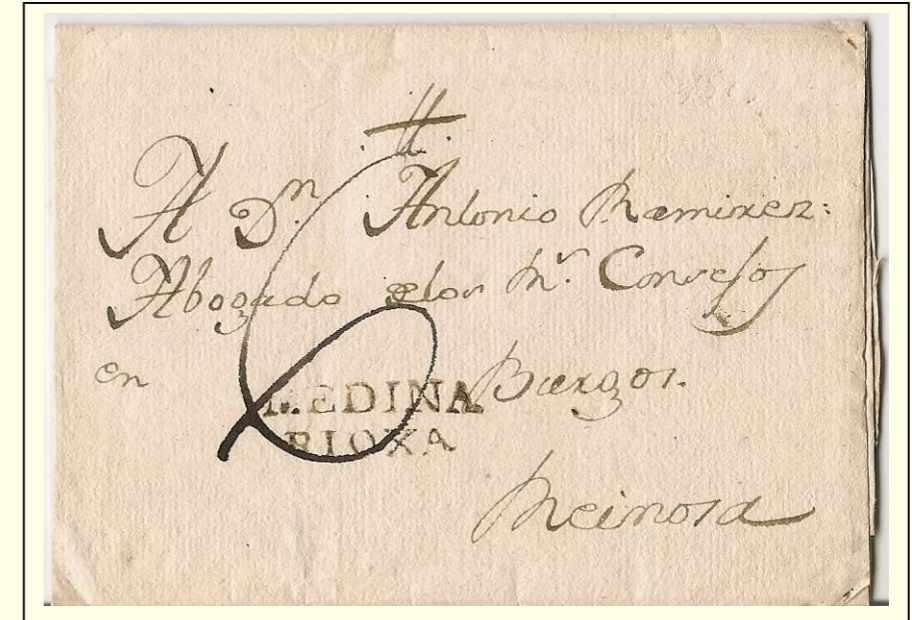 A Dn. Antonio Ramirez:
Abogado delos Rs. Consejos
en Burgos.
6
MEDINA
RIOXA
Reinosa